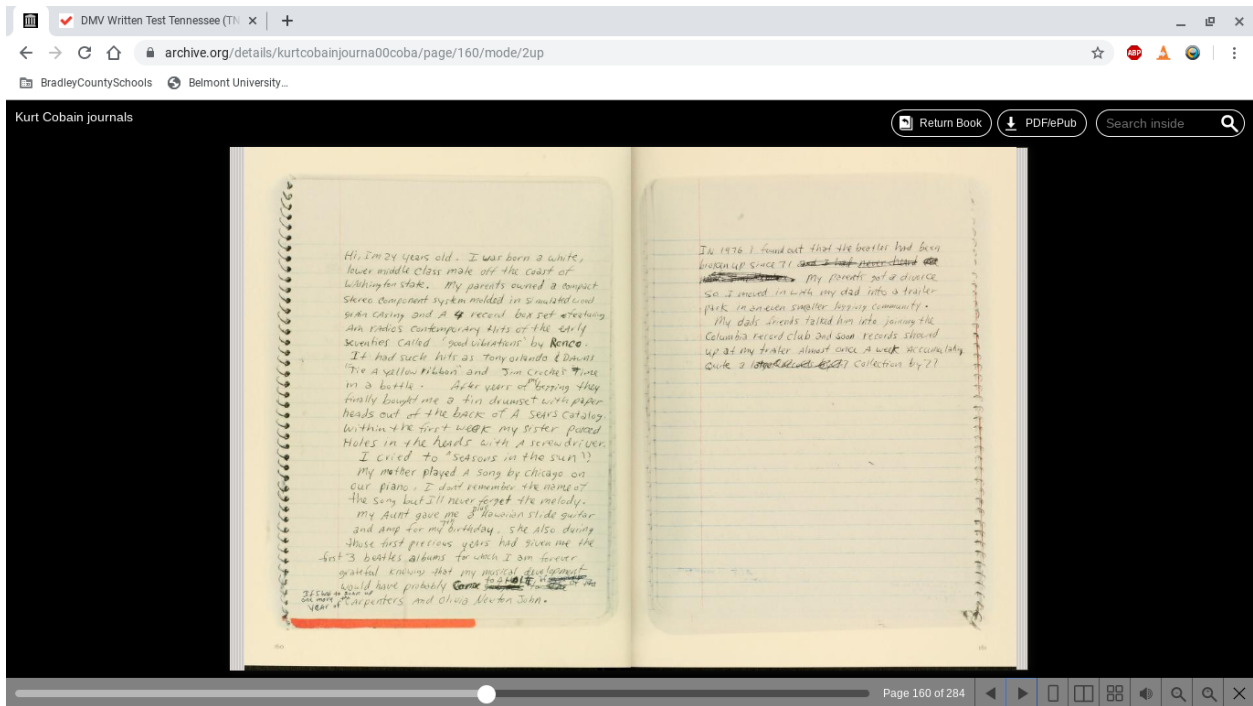 DMV Written Test Tennessee (TN
archive.org/details/kurtcobainjourna00coba/page/160/mode/2up
ABP
BradleyCountySchools
Belmont University...
Kurt Cobain journals
Return Book
PDF/ePub
Search inside
Hi, I'm 24 years old. I was born a white,
lower middle class male off the coast of
Washington state. My parents owned a compact
stereo component system molded in simulated wood
grain casing and A 4 record box set featuring
Am radios contemporary Hits of the early
seventies CAlled 'good vibrations' by Ronco.
It had such hits as Tony orlando & Dawns
"Tie A yellow Ribbon" and Jim Croche's Time
in a bottle. After years of my begging they
finally bought me a tin drumset with paper
heads out of the back of A Sears Catalog.
Within the first week my sister poked
Holes in the heads with A screwdriver.
I cried to "Seasons in the sun"!
My mother played A song by chicago on
our piano. I dont remember the name of
the song but I'll never forget the melody.
My Aunt gave me a plus Hawaiian slide guitar
and amp for my 7th birthday. she Also during
those first precious years had given me the
first 3 beatles albums for which I am forever
grateful knowing that my musical development
would have probably Come to a HOLT, of the
If I had to soak up
one more
year of Carpenters And Olivia Newton John.
60
In 1976 I found out that the beatles had been
broken up since 71 and I had never heard
My parents got a divorce
so I moved in with my dad into a trailer
park in an even smaller logging community.
My dads friends talked him into joining the
Columbia record club and soon records showed
up at my trailer Almost once A week Accumulating
Quite a large Collection by 77
Page 160 of 284